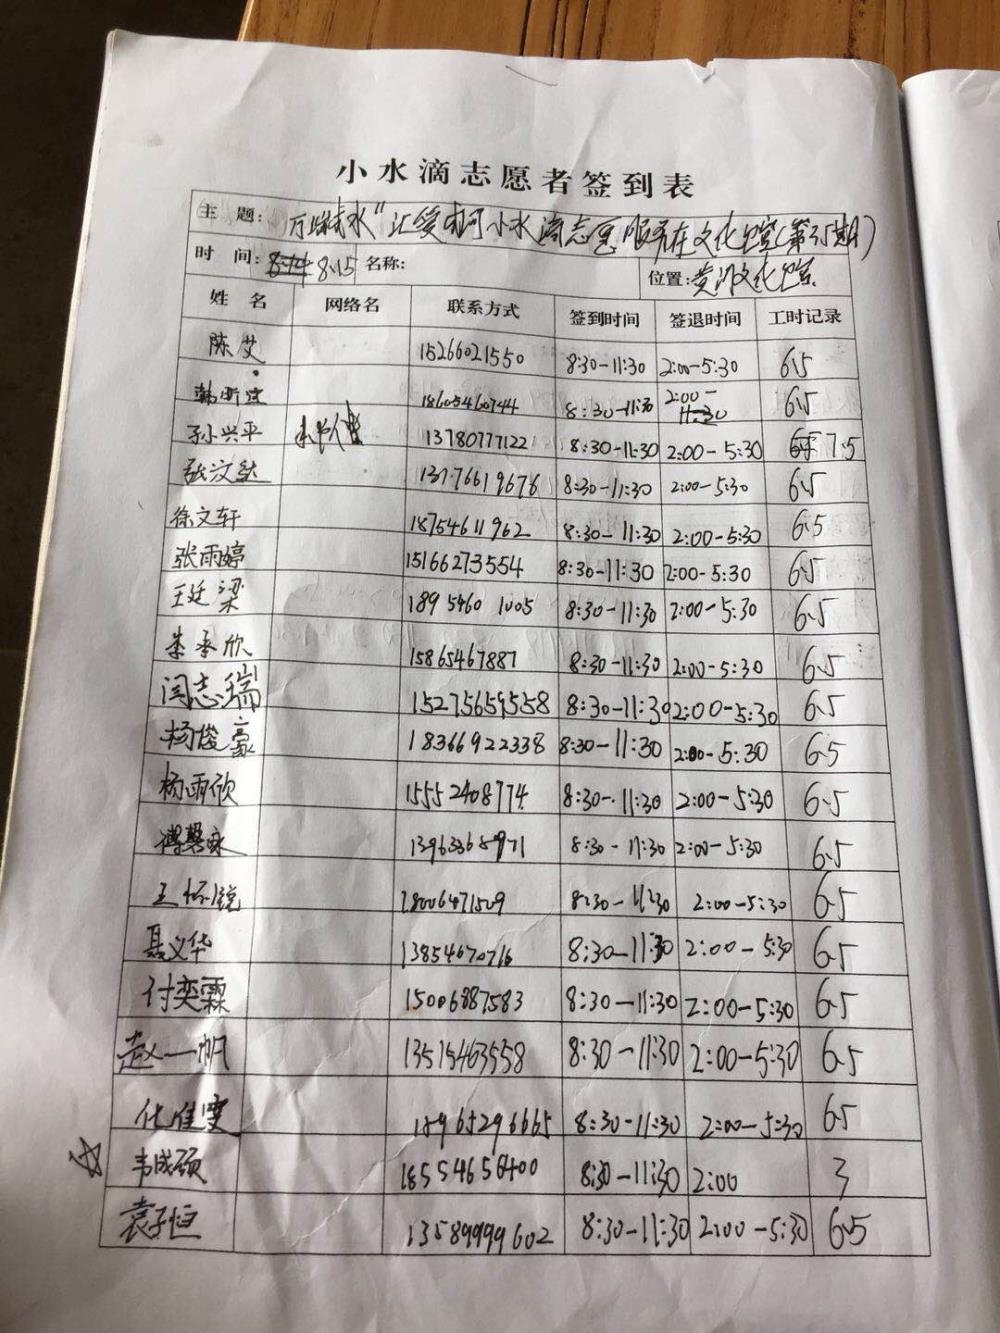 小水滴志愿者签到表
主 题: 汇爱 小水滴志愿服务在文化馆(第35期)
时 间: 8.15 名称: 位置: 黄河文化馆
姓 名 网络名 联系方式 签到时间 签退时间 工时记录
陈艾 15266021550 8:30-11:30 2:00-5:30 6.5
韩昕 18605460744 8:30-11:30 2:00- 6.5
孙兴平 13780777122 8:30-11:30 2:00-5:30 7.5
张文 13176619676 8:30-11:30 2:00-5:30 6.5
徐文轩 18754611962 8:30-11:30 2:00-5:30 6.5
张雨婷 15166273554 8:30-11:30 2:00-5:30 6.5
王廷梁 1895460 1005 8:30-11:30 2:00-5:30 6.5
李承欣 15865467887 8:30-11:30 2:00-5:30 6.5
闫志瑞 15275659558 8:30-11:30 2:00-5:30 6.5
杨俊豪 18366922338 8:30-11:30 2:00-5:30 6.5
杨雨欣 15552408774 8:30-11:30 2:00-5:30 6.5
傅馨咏 8:30-11:30 2:00-5:30 6.5
王怀锐 18006471509 8:30-11:30 2:00-5:30 6.5
聂义华 13854670716 8:30-11:30 2:00-5:30 6.5
付奕霖 15006887583 8:30-11:30 2:00-5:30 6.5
赵一帆 13515463558 8:30-11:30 2:00-5:30 6.5
化佳雯 18965296665 8:30-11:30 2:00-5:30 6.5
韦成硕 18554656400 8:30-11:30 2:00 3
袁子恒 13589999602 8:30-11:30 2:00-5:30 6.5